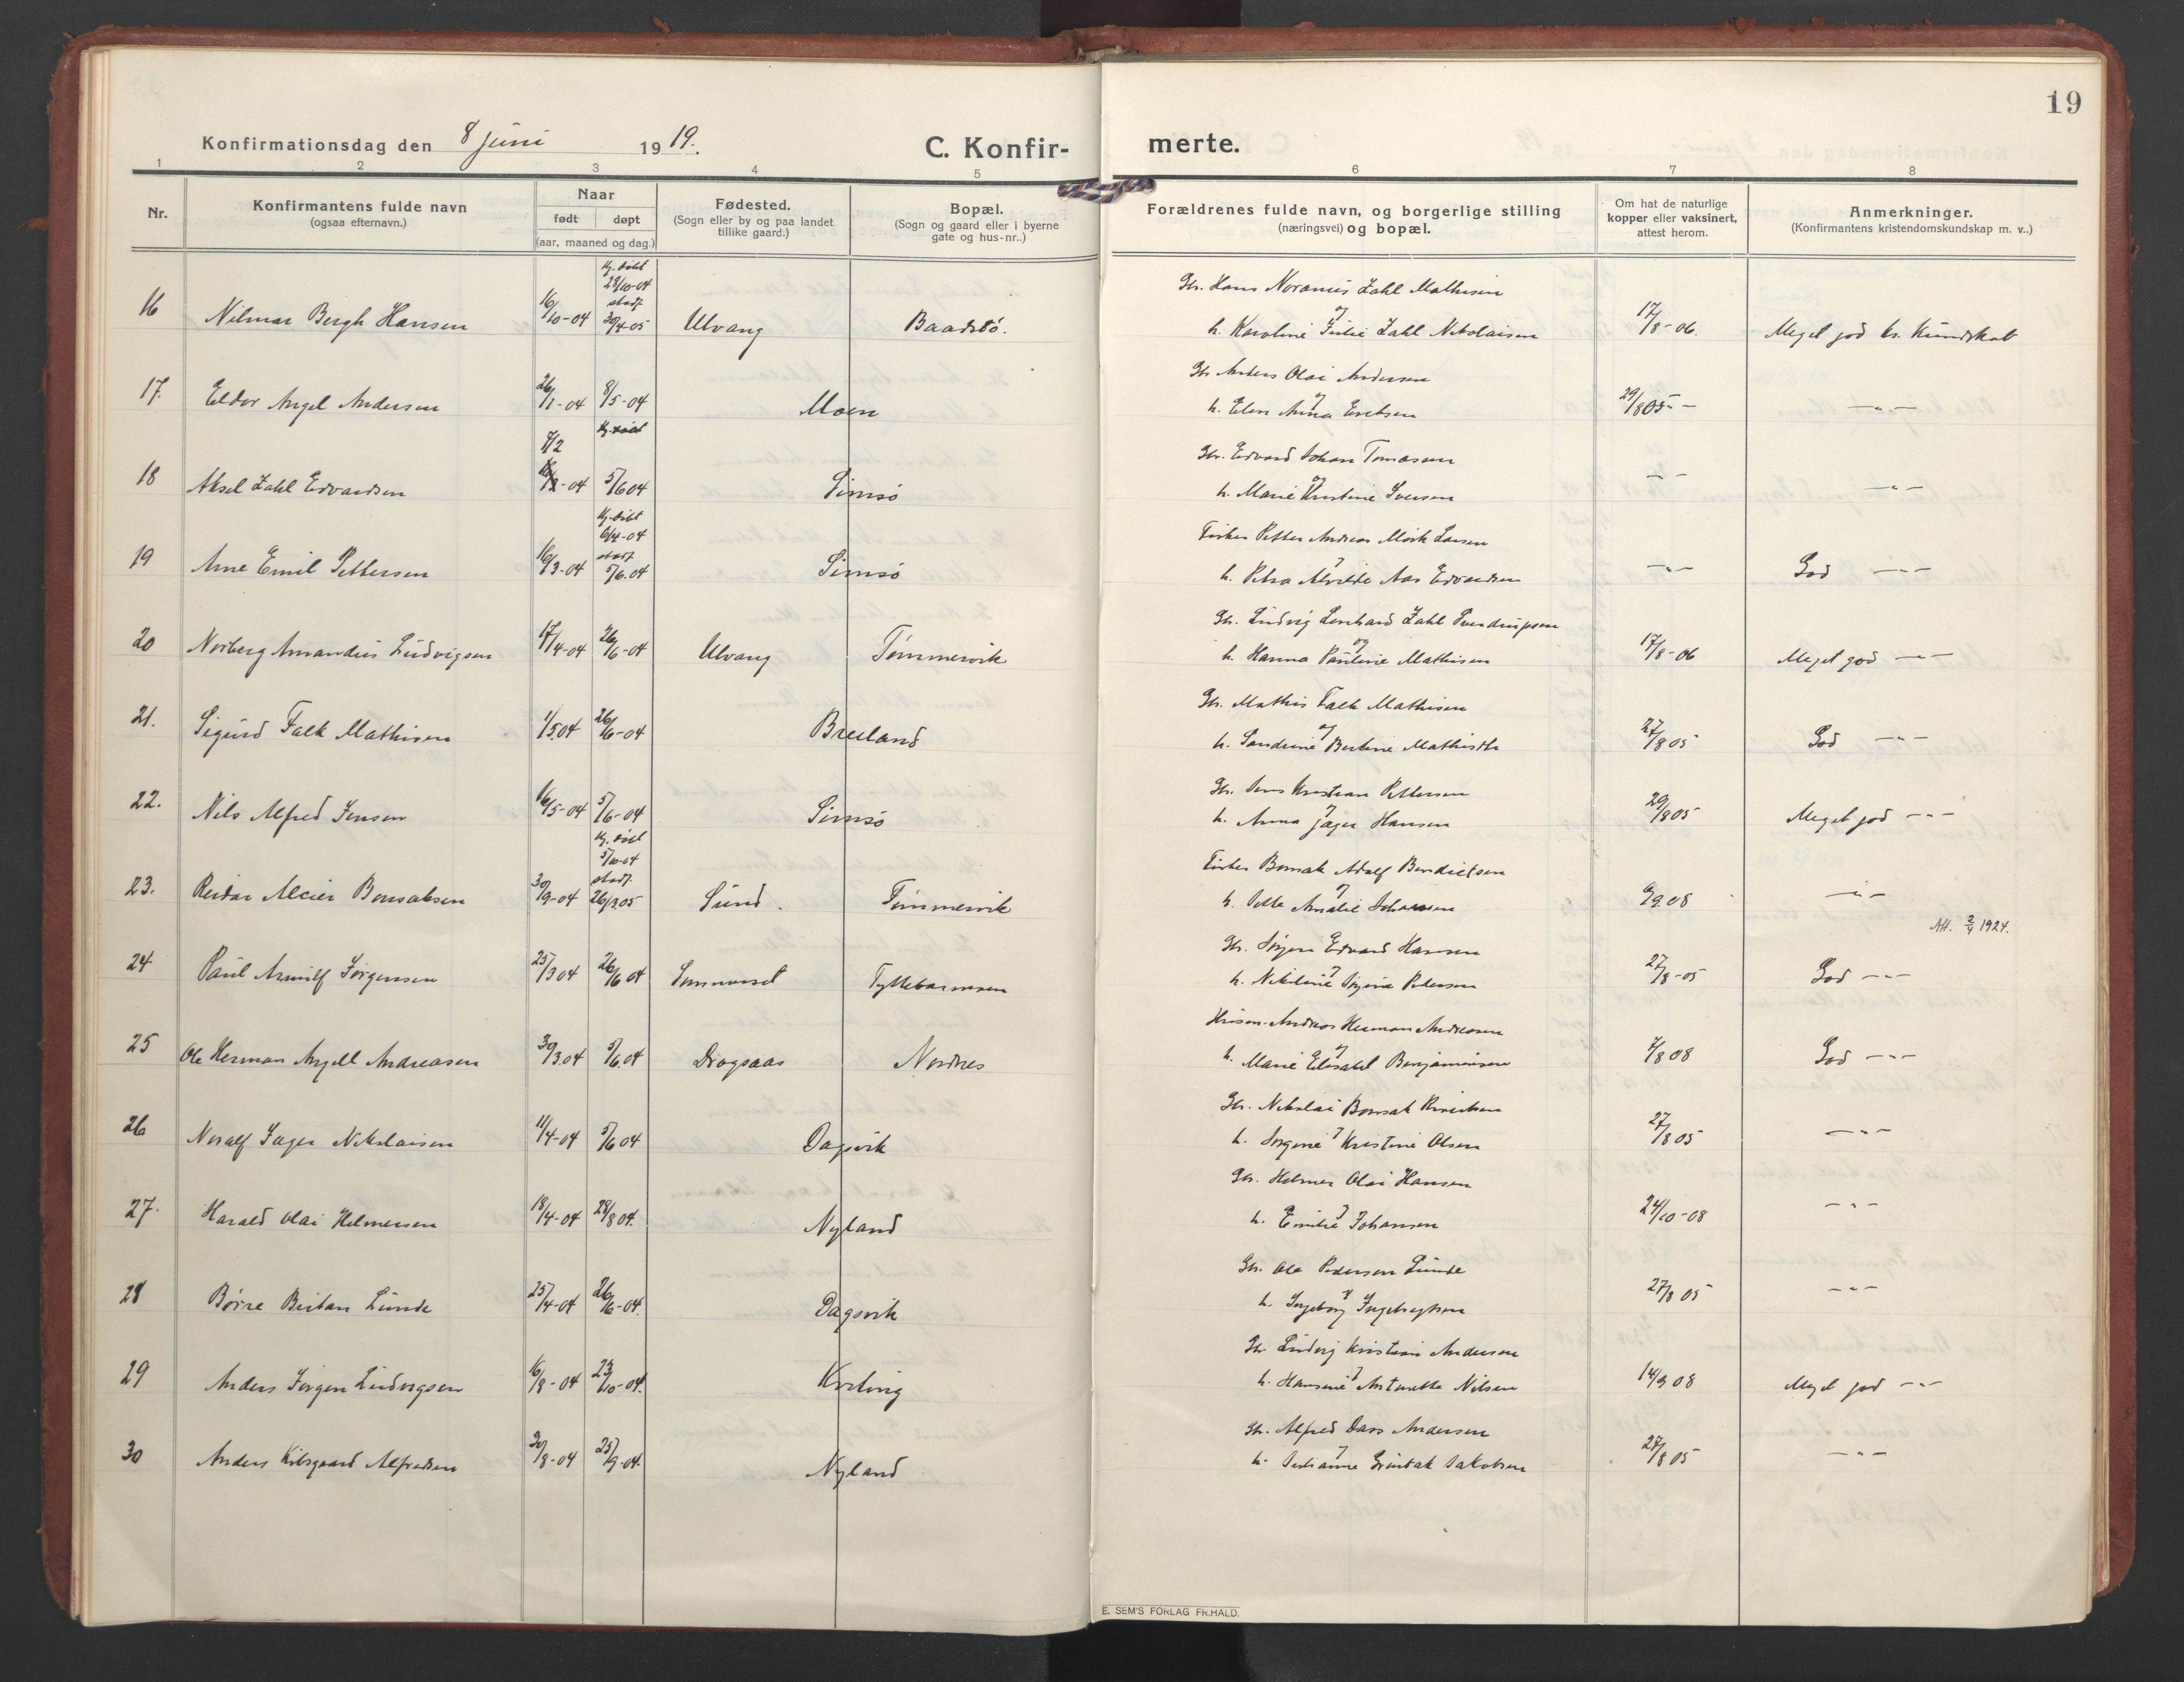 19
Konfirmationsdag den 8 juni 1919.
C. Konfir-
merte.
1 2 3 4 5 6 7 8
Nr.
Konfirmantens fulde navn
(ogsaa efternavn.)
Naar
født døpt
(aar, maaned og dag.)
Fødested.
(Sogn eller by og paa landet
tillike gaard.)
Bopæl.
(Sogn og gaard eller i byerne
gate og hus-nr..)
Forældrenes fulde navn, og borgerlige stilling
(næringsvei) og bopæl.
Om hat de naturlige
kopper eller vaksinert,
attest herom.
Anmerkninger.
(Konfirmantens kristendomskundskap m. v..)
Hj. døbt
28/10-04
stadf.
Gbr. Hans Noranius Zahl Mathisen
16 Hilmar Bergh Hansen 16/10-04 30/4-05 Ulvang Baadstö. og
h. Karoline Julie Zahl Nikolaisen 17/8-06. Meget god kr. Kundskab
Gbr Anders Olai Andersen
17. Eldor Angel Andersen 26/1-04 8/5-04 Moen og
h. Elen Anna Eriksen 29/8 05 -"-
Gbr. Edvard Johan Tomassen
18 Aksel Zahl Edvardsen 7/2 -04 5/6 04 Simsö og
h. Marie Kristine Iversen -"- -"-
Hj. døbt
6/4-04
stadf.
Fisker Petter Andreas Mörk Larsen
19 Arne Emil Pettersen 16/3-04 5/6.04 Simsö og
h. Petra Alvilde Aas Edvardsen -"- God -"-
Gbr. Ludvig Lenhard Zahl
20 Norberg Amandus Ludvigsen 17/4-04 26/6-04 Ulvang Tömmervik og
h. Hanna Pauline Mathisen 17/8-06 Meget god -"-
Gbr. Mathis Falk Mathisen
21. Sigurd Falk Mathisen 1/5.04 26/6-04 Breiland og
h. Sandrine Berline 27/8 05 God -"-
Gbr. Jens Kristian Pettersen
22. Nils Alfred Jensen 16/5-04 5/6-04 Simsö og
h. Anna Jæger Hansen 29/8 05 Meget god -"-
Hj. døbt
5/10-04
stadf.
Fisker Bonsak Adolf Bendiktsen
23. Reidar Meier Bonsaksen 30/9-04 26/3 05 Sund. Tömmervik og
h. Amalie Johansen 9/9.08 -"-
Att. 2/4 1924.
Gbr. Jörgen Edvard Hansen
24 Paul Arnulf Jørgensen 25/3 04 26/6 04 og
h. Nikoline Petersen 27/8-05 God -"-
Husm. Andreas Herman Andreasen
25 Ole Herman Angell Andreasen 30/3.04 5/6.04 Dragsaas Nordnes og
h. Marie Elisabet Benjaminsen 7/8 08 God -"-
Gbr. Nikolai Bonsak
26 Noralf Jæger Nikolaisen 11/4-04 5/6 04 Dagsvik og
h. Jörgine Kristine Olsen 27/8 05 -"-
Gbr. Helmer Olai Hansen
27. Harald Olai Helmersen 18/4-04 28/8 04. Nyland og
h. Emilie Johansen 24/10-08 -"-
Gbr. Ole Pedersen Lunde
28 Börre Bertan Lunde 25/4-04 26/6-04. Dagsvik og
h. Ingeborg Ingebrigtsen 27/8 05 -"-
Gbr Ludvig Kristian Andersen
29 Anders Jørgen Ludvigsen 16/8-04 23/10-04. Kviting og
h. Hansine Antonette Nilsen 14/9 08 Meget god -"-
Gbr. Alfred Dass Andersen
30 Anders Kilsgaard Alfredsen 30/8-04 25/9-04. Nyland og
h. Jakobsen 27/8 05 -"-
E. SEM'S FORLAG FR.HALD.